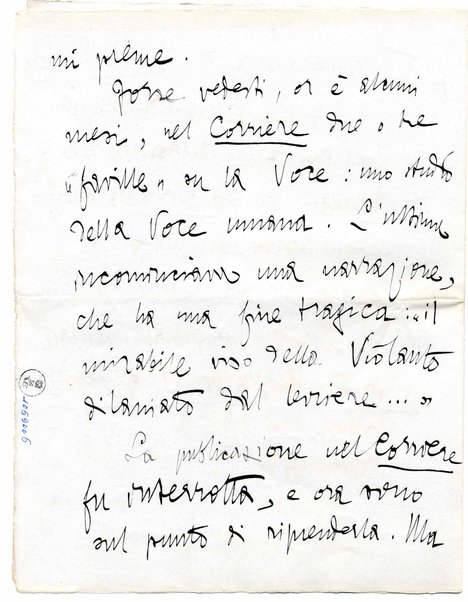 mi preme.
Forse vedesti, or è alcuni
mesi, nel Corriere due o tre
"faville" su la Voce: uno studio
della Voce umana. L'ultima
incominciava una narrazione,
che ha una fine tragica: "il
mirabile viso della Violante
dilaniato dal levriere ... »
La publicazione nel Corriere
fu interrotta, e ora sono
sul punto di riprenderla. Ma